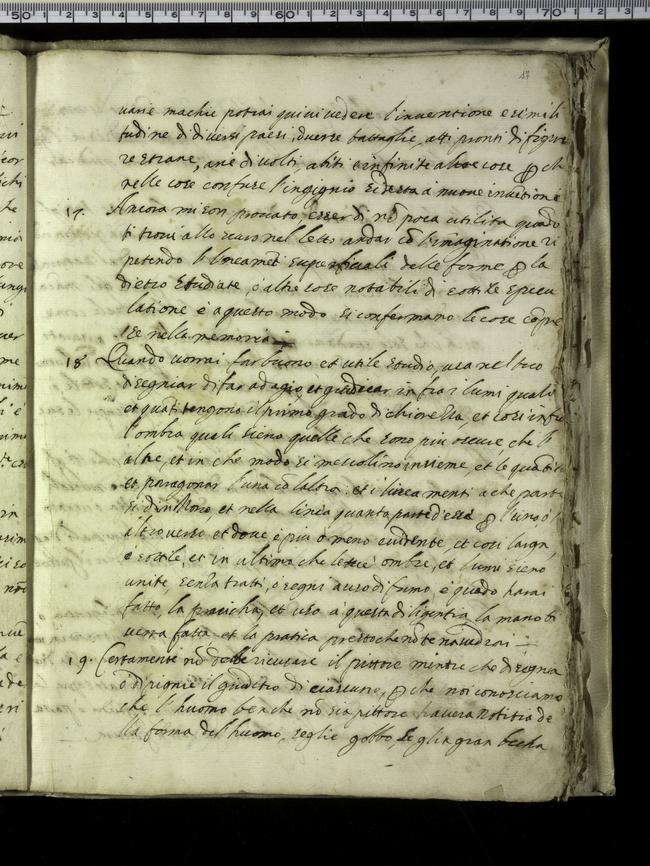 17
varie machie potrai quivi vedere l'inventione e simili
tudine di diversi paesi, diverse battaglie, atti pronti di figure
strane, arie di volti, abiti e infinite altre cose ꝑ che
nelle cose confuse l'ingignio si desta a nuove inventione
17. Ancora mi son provato, esser di nō poca utilita quādo
ti trovi allo scuro nel letto andar cō l'imaginatione ri
petendo li lineamēti superficiali delle forme ꝑ la
dietro studiate, o altre cose notabili di sottile specu
latione e a questo modo si confermano le cose cōpre
se nella memoria
18 Quando vorrai far buono et utile studio, usa nel tuo
disegniar di far adagio, et giudicar infra i lumi quali
et quāti tengono il primo grado di chiarezza, et cosi infra
l'ombra quali sieno quelle che sono piu oscure che l'
altre, et in che modo si mescolino insieme, et le quātità
et paragonar l'una cō l'altra: et i lineamenti a che parte
si et nella linea quanta parte d'essa ꝑ l'uno o
altro verso, et dove è piu o meno evidente, et cosi larga
e sottile, et in ultimo che le tue ombre, et lumi sieno
unite, senza tratti, o segni a uso di fumo, e quādo harai
fatto la mano et uso a questa diligentia la mano ti
verra fatta et la pratica presto che nō te n'avedrai
19. Certamente nō debbe ricusare il pittore mentre che disegnia
o dipignie il giuditio di ciascuno, ꝑ che noi conosciamo
che l'huomo benche nō sia pittore havera notitia de
lla forma del'huomo, s'egli è gobbo, s'egli a gran